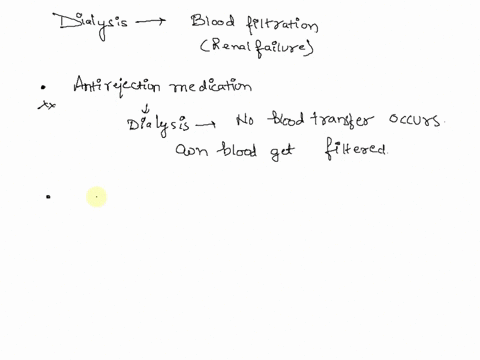 Dialysis → Blood filtration
(Renal failure)
• Antirejection medication
xx ↓
Dialysis → No blood transfer occurs.
own blood get filtered.
•